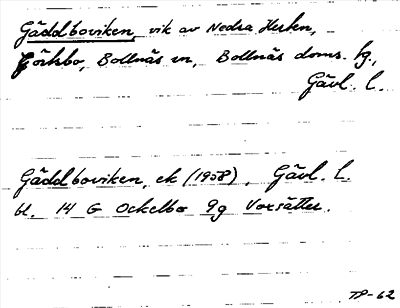 Gäddboviken, vik av Nedra Hesken,
Görtsbo, Bollnäs sn, Bollnäs doms. hg.,
Gävl. l.
Gäddboviken, ek (1958), Gävl. l.
bl. 14 G Ockelbo 9g Voxsätter.
TP-62